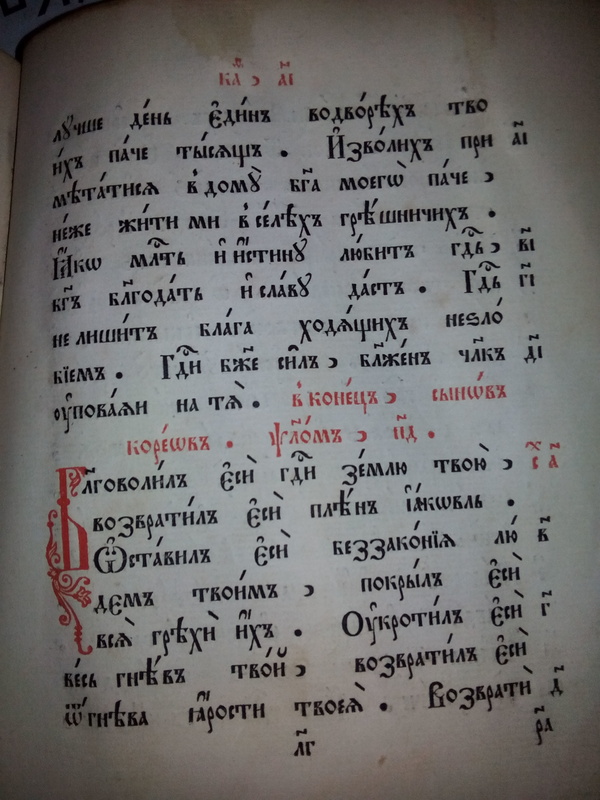 к҃а , а҃і
лꙋ́чше де́нь є҆ди́нъ водво́рѣхъ тво
и́хъ па́че ты́сѧщъ . И҆зво́лихъ при а҃і
мѣта́тисѧ в̾домꙋ̀ бг҃а моегѡ̀ па́че ,
не́же жи́ти ми в̾се́лѣхъ грѣ́шничихъ .
Ꙗ҆́кѡ млⷭ҇ть и҆ и҆́стинꙋ лю́битъ гдⷭ҇ь , в҃і
бг҃ъ блгⷣода́ть и҆ сла́вꙋ да́стъ . Гдⷭ҇ь г҃і
не лиши́тъ бла́га ходѧ́щихъ неѕло́
бїемъ . Гдⷭ҇и бж҃е си́лъ , бл҃же́нъ чл҃къ д҃і
ᲂу҆пова́ѧи на тѧ̀ . в̾ коне́цъ , сынѡ́въ
коре́ѡвъ . ѱало́мъ , п҃д .
Бл҃говоли́лъ є҆сѝ гдⷭ҇и зе́млю твою̀ , сⷯ а҃
возврати́лъ є҆сѝ плѣ́нъ і҆а́кѡвль .
Ѿста́вилъ є҆сѝ беззако́нїѧ лю́ в҃
демъ твои́мъ , покры́лъ є҆сѝ
всѧ̀ грѣхѝ и҆́хъ . Оу҆кроти́лъ є҆сѝ г҃
ве́сь гнѣ́въ тво́й , возврати́лъ є҆сѝ
ѿ гнѣ́ва ꙗ҆́рости твоеѧ̀ . Возвратѝ д҃
л҃г р҃а